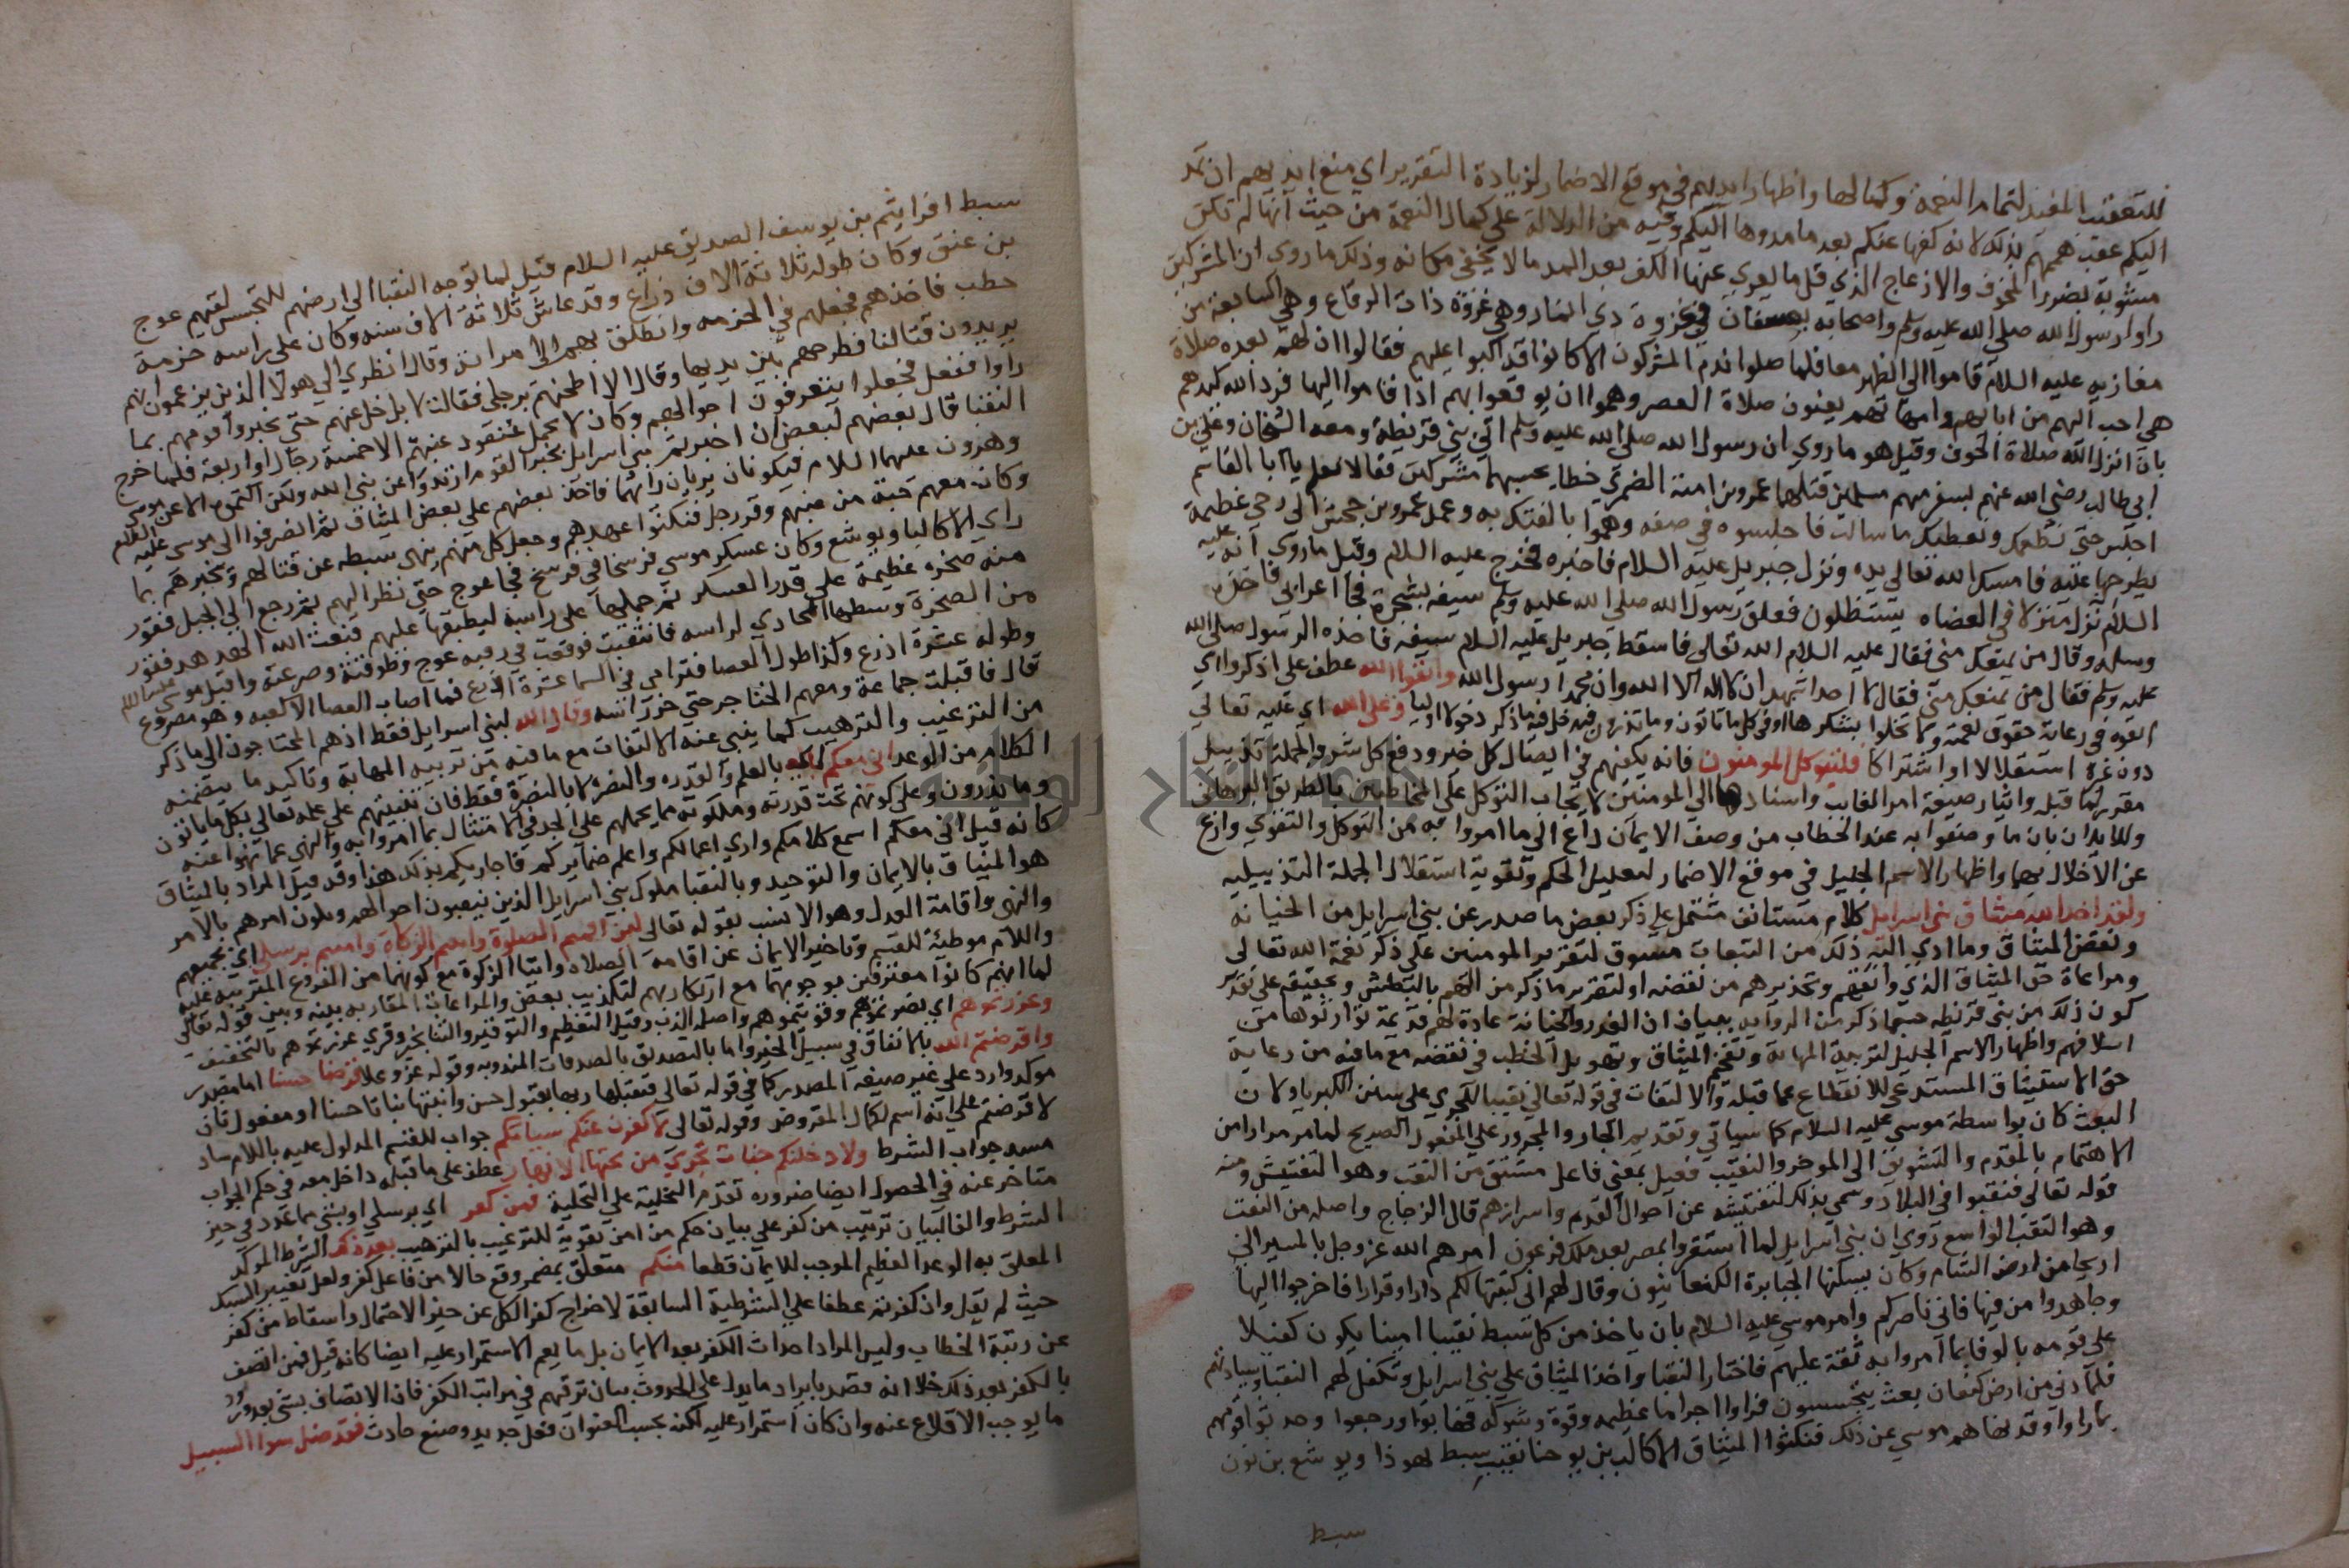 للتعقيب المفيد لتمام النعمة وكمالها واظهار ايديهم في موقع الاضمار لزيادة التقرير اي منع ايديهم ان تمد
اليكم عقيب همهم بذلك لانه كفها عنكم بعد ما مدوها اليكم وفيه من الدلالة على كمال النعمة من حيث انها لم تكن
مشوبة بضرر الخوف والازعاج الذي قل ما يعرى عنها الكف بعد المد ما لا يخفى مكانه وذلك ما روي ان المشركين
راوا رسول الله صلى الله عليه وسلم واصحابه بعسفان في غزوة ذي انمار وهي غزوة ذات الرقاع وهي السابعة من
مغازيه عليه السلام قاموا الى الظهر معا فلما صلوا ندم المشركون الا كانوا قد اكبوا عليهم فقالوا ان لهم بعده صلاة
هي احب اليهم من ابائهم وامهاتهم يعنون صلاة العصر وهموا ان يوقعوا بهم اذا قاموا اليها فرد الله كيدهم
بان انزل الله صلاة الخوف وقيل هو ما روي ان رسول الله صلى الله عليه وسلم اتى بني قريظة ومعه الشيخان وعلي بن
ابي طالب رضي الله عنهم يستقرضهم مسلمين قتلهما عمرو بن امية الضمري خطا يحسبهما مشركين فقالوا نعم يا ابا القاسم
اجلس حتى نطعمك ونعطيك ما سالت فاجلسوه في صفه وهموا بالفتك به وعمد عمرو بن جحش الى رحى عظيمة
يطرحها عليه فامسك الله تعالى يده ونزل جبريل عليه السلام فاخبره فخرج عليه السلام وقيل ما روي انه عليه
السلام نزل منزلا في العضاه يستظلون فعلق رسول الله صلى الله عليه وسلم سيفه بشجرة فجا اعرابي فاخذه
وسله وقال من يمنعك مني فقال عليه السلام الله تعالى فاسقط جبريل عليه السلام سيفه فاخذه الرسول صلى الله
عليه وسلم فقال من يمنعك مني فقال لا احد اشهد ان لا اله الا الله وان محمدا رسول الله واتقوا الله عطف على اذكروا اي
اتقوه في رعاية حقوق نعمته ولا تخلوا بشكرها او في كل ما تاتون وما تذرون فيدخل فيه ما ذكر دخولا اوليا وعلى الله اي عليه تعالى
دون غيره استقلالا او اشتراكا فليتوكل المومنون فانه يكفيهم في ايصال كل خير ودفع كل شر والجملة تذييل
مقرر لما قبله وايثار صيغة امر الغائب واسنادها الى المومنين لايجاب التوكل على المخاطبين بالطريق البرهاني
وللايذان بان ما وصفوا به عند الخطاب من وصف الايمان داع الى ما امروا به من التوكل والتقوى وازع
عن الاخلال بهما واظهار الاسم الجليل في موقع الاضمار لتعليل الحكم وتقوية استقلال الجملة التذييلية
ولقد اخذ الله ميثاق بني اسرائيل كلام مستانف مشتمل على ذكر بعض ما صدر عن بني اسرائيل من الخيانة
ونقض الميثاق وما ادى اليه ذلك من التبعات مسوق لتقرير المومنين على ذكر نعمة الله تعالى
ومراعاة حق الميثاق الذي واثقهم وتحذيرهم من نقضه او لتقرير ما ذكر من الهم بالبطش وتحقيقه على تقدير
كون ذلك من بني قريظه حسبما ذكر من الرواية ببيان ان الغدر والخيانة عادة لهم قديمة توارثوها من
اسلافهم واظهار الاسم الجليل لتربية المهابة وتفخيم الميثاق وتهويل الخطب في نقضه مع ما فيه من رعاية
حق الاستيثاق المستدعي للانقطاع عما قبله والالتفات في قوله تعالى نقيبا للجري على سنن الكبريا ولان
البعث كان بواسطة موسى عليه السلام كما سياتي وتقديم الجار والمجرور على المفعول الصريح لما مر مرارا من
الاهتمام بالمقدم والتشويق الى الموخر والنقيب فعيل بمعنى فاعل مشتق من النقب وهو التفتيش ومنه
قوله تعالى فنقبوا في البلاد وسمي بذلك لتفتيشه عن احوال القوم واسرارهم قال الزجاج واصله من النقب
وهو الثقب الواسع روي ان بني اسرائيل لما استقروا بمصر بعد مهلك فرعون امرهم الله عز وجل بالمسير الى
اريحا من ارض الشام وكان يسكنها الجبابرة الكنعانيون وقال لهم اني كتبتها لكم دارا وقرارا فاخرجوا اليها
وجاهدوا من فيها فاني ناصركم وامر موسى عليه السلام بان ياخذ من كل سبط نقيبا امينا يكون كفيلا
على قومه بالوفا بما امروا به ثقة عليهم فاختار النقبا واخذ الميثاق على بني اسرائيل وتكفل لهم النقبا وسار بهم
فلما دنى من ارض كنعان بعث يتجسسون فراوا اجراما عظيمه وقوة وشوكة فهابوا ورجعوا وحدثوا قومهم
بما راوا وقد نهاهم موسى عن ذلك فنكثوا الميثاق الا كالب بن يوحنا نقيب سبط يهوذا ويوشع بن نون
سبط
سبط افراييم بن يوسف الصديق عليه السلام قيل لما توجه النقبا الى ارضهم للتجسس لقيهم عوج
بن عنق وكان طوله ثلاثة الاف ذراع وقد عاش ثلاثة الاف سنه وكان على راسه حزمة
حطب فاخذهم فجعلهم في الحزمه وانطلق بهم الى امراته وقال انظري الى هولا الذين يزعمون انهم
يريدون قتالنا فطرحهم بين يديها وقال الا اطحنهم برجلي فقالت لا بل خل عنهم حتى يخبروا قومهم بما
راوا ففعل فجعلوا يتعرفون احوالهم وكان لا يحمل عنقود عنبهم الا خمسة رجال او اربعة فلما خرج
النقبا قال بعضهم لبعض ان اخبرتم بني اسرائيل بخبر القوم ارتدوا عن نبي الله ولكن اكتموه الا عن موسى
وهرون عليهما السلام فيكونان يريان رايهما فاخذ بعضهم على بعض الميثاق ثم انصرفوا الى موسى عليه السلام
وكان معهم حبة من عنبهم وقر رجل فنكثوا عهدهم وجعل كل منهم ينهى سبطه عن قتالهم ويخبرهم بما
راى الا كالبا ويوشع وكان عسكر موسى فرسخا في فرسخ فجا عوج حتى نظر اليهم ثم رجع الى الجبل فقور
منه صخرة عظيمة على قدر العسكر ثم حملها على راسه ليطبقها عليهم فبعث الله الهدهد فقور
من الصخرة وسطها المحاذي لراسه فانثقبت فوقعت في رقبة عوج وطوقته وصرعته واقبل موسى عليه السلام
وطوله عشرة اذرع وكذا طول العصا فترامى في السما عشرة اذرع فما اصاب العصا الا كعبه وهو مصروع
قال فاقبلت جماعة ومعهم الخناجر حتى حزوا راسه وقال الله لبني اسرائيل فقط اذ هم المحتاجون الى ما ذكر
من الترغيب والترهيب كما ينبي عنه الالتفات مع ما فيه من تربية المهابة وتاكيد ما يتضمنه
الكلام من الوعد اني معكم اي بالعلم والقدرة والنصرة لا بالنصرة فقط فان تنبيههم على علمه تعالى بكل ما ياتون
وما يذرون وعلى كونهم تحت قدرته وملكوته مما يحملهم على الجد في الامتثال بما امروا به والنهي عما نهوا عنه
كانه قيل اني معكم اسمع كلامكم وارى اعمالكم واعلم ضمايركم فاجازيكم بذلك هذا وقد قيل المراد بالميثاق
هو الميثاق بالايمان والتوحيد وبالنقبا ملوك بني اسرائيل الذين ينقبون احوالهم ويلون امرهم بالامر
والنهي واقامة العدل وهو الانسب بقوله تعالى لئن اقمتم الصلوة واتيتم الزكاة وامنتم برسلي اي بجميعهم
واللام موطئة للقسم وتاخير الايمان عن اقامة الصلاة وايتا الزكوة مع كونهما من الفروع المترتبه عليه
لما انهم كانوا معترفين بوجوبهما مع ارتكابهم لتكذيب بعض والمراعاة المقاربه بينه وبين قوله تعالى
وعزرتموهم اي نصرتموهم وقويتموهم واصله الذب وقيل التعظيم والتوقير والثنا بخير وقري عزرتموهم بالتخفيف
واقرضتم الله بالانفاق في سبيل الخير واما بالتصديق بالصدقات المندوبه وقوله عز وعلا قرضا حسنا اما مصدر
موكد وارد على غير صيغة المصدر كما في قوله تعالى فتقبلها ربها بقبول حسن وانبتها نباتا حسنا او مفعول ثان
لاقرضتم على انه اسم للمال المقروض وقوله تعالى لاكفرن عنكم سيياتكم جواب للقسم المدلول عليه باللام ساد
مسد جواب الشرط ولادخلنكم جنات تجري من تحتها الانهار عطف على ما قبله داخل معه في حكم الجواب
متاخر عنه في الحصول ايضا ضروره تقدم التخلية على التحلية فمن كفر اي برسلي او بشي مما عدد في حيز
الشرط والفا لبيان ترتيب من كفر على بيان حكم من امن تقوية للترغيب بالترهيب بعد ذلك الشرط الموكد
المعلق به الوعد العظيم الموجب للايمان قطعا منكم متعلق بمضمر وقع حالا من فاعل كفر ولعل تغيير السبك
حيث لم يقل وان كفرتم عطفا على الشرطية السابقة لاخراج كفر الكل عن حيز الاحتمال واسقاط من كفر
عن رتبة الخطاب وليس المراد احداث الكفر بعد الايمان بل ما يعم الاستمرار عليه ايضا كانه قيل فمن اتصف
بالكفر بعد ذلك خلا انه قصد بايراد ما يدل على الحدوث بيان ترقيهم في مراتب الكفر فان الاتصاف بشي بعد ورود
ما يوجب الاقلاع عنه وان كان استمرارا عليه لكنه بحسب العنوان فعل جديد وصنع حادث فقد ضل سوا السبيل